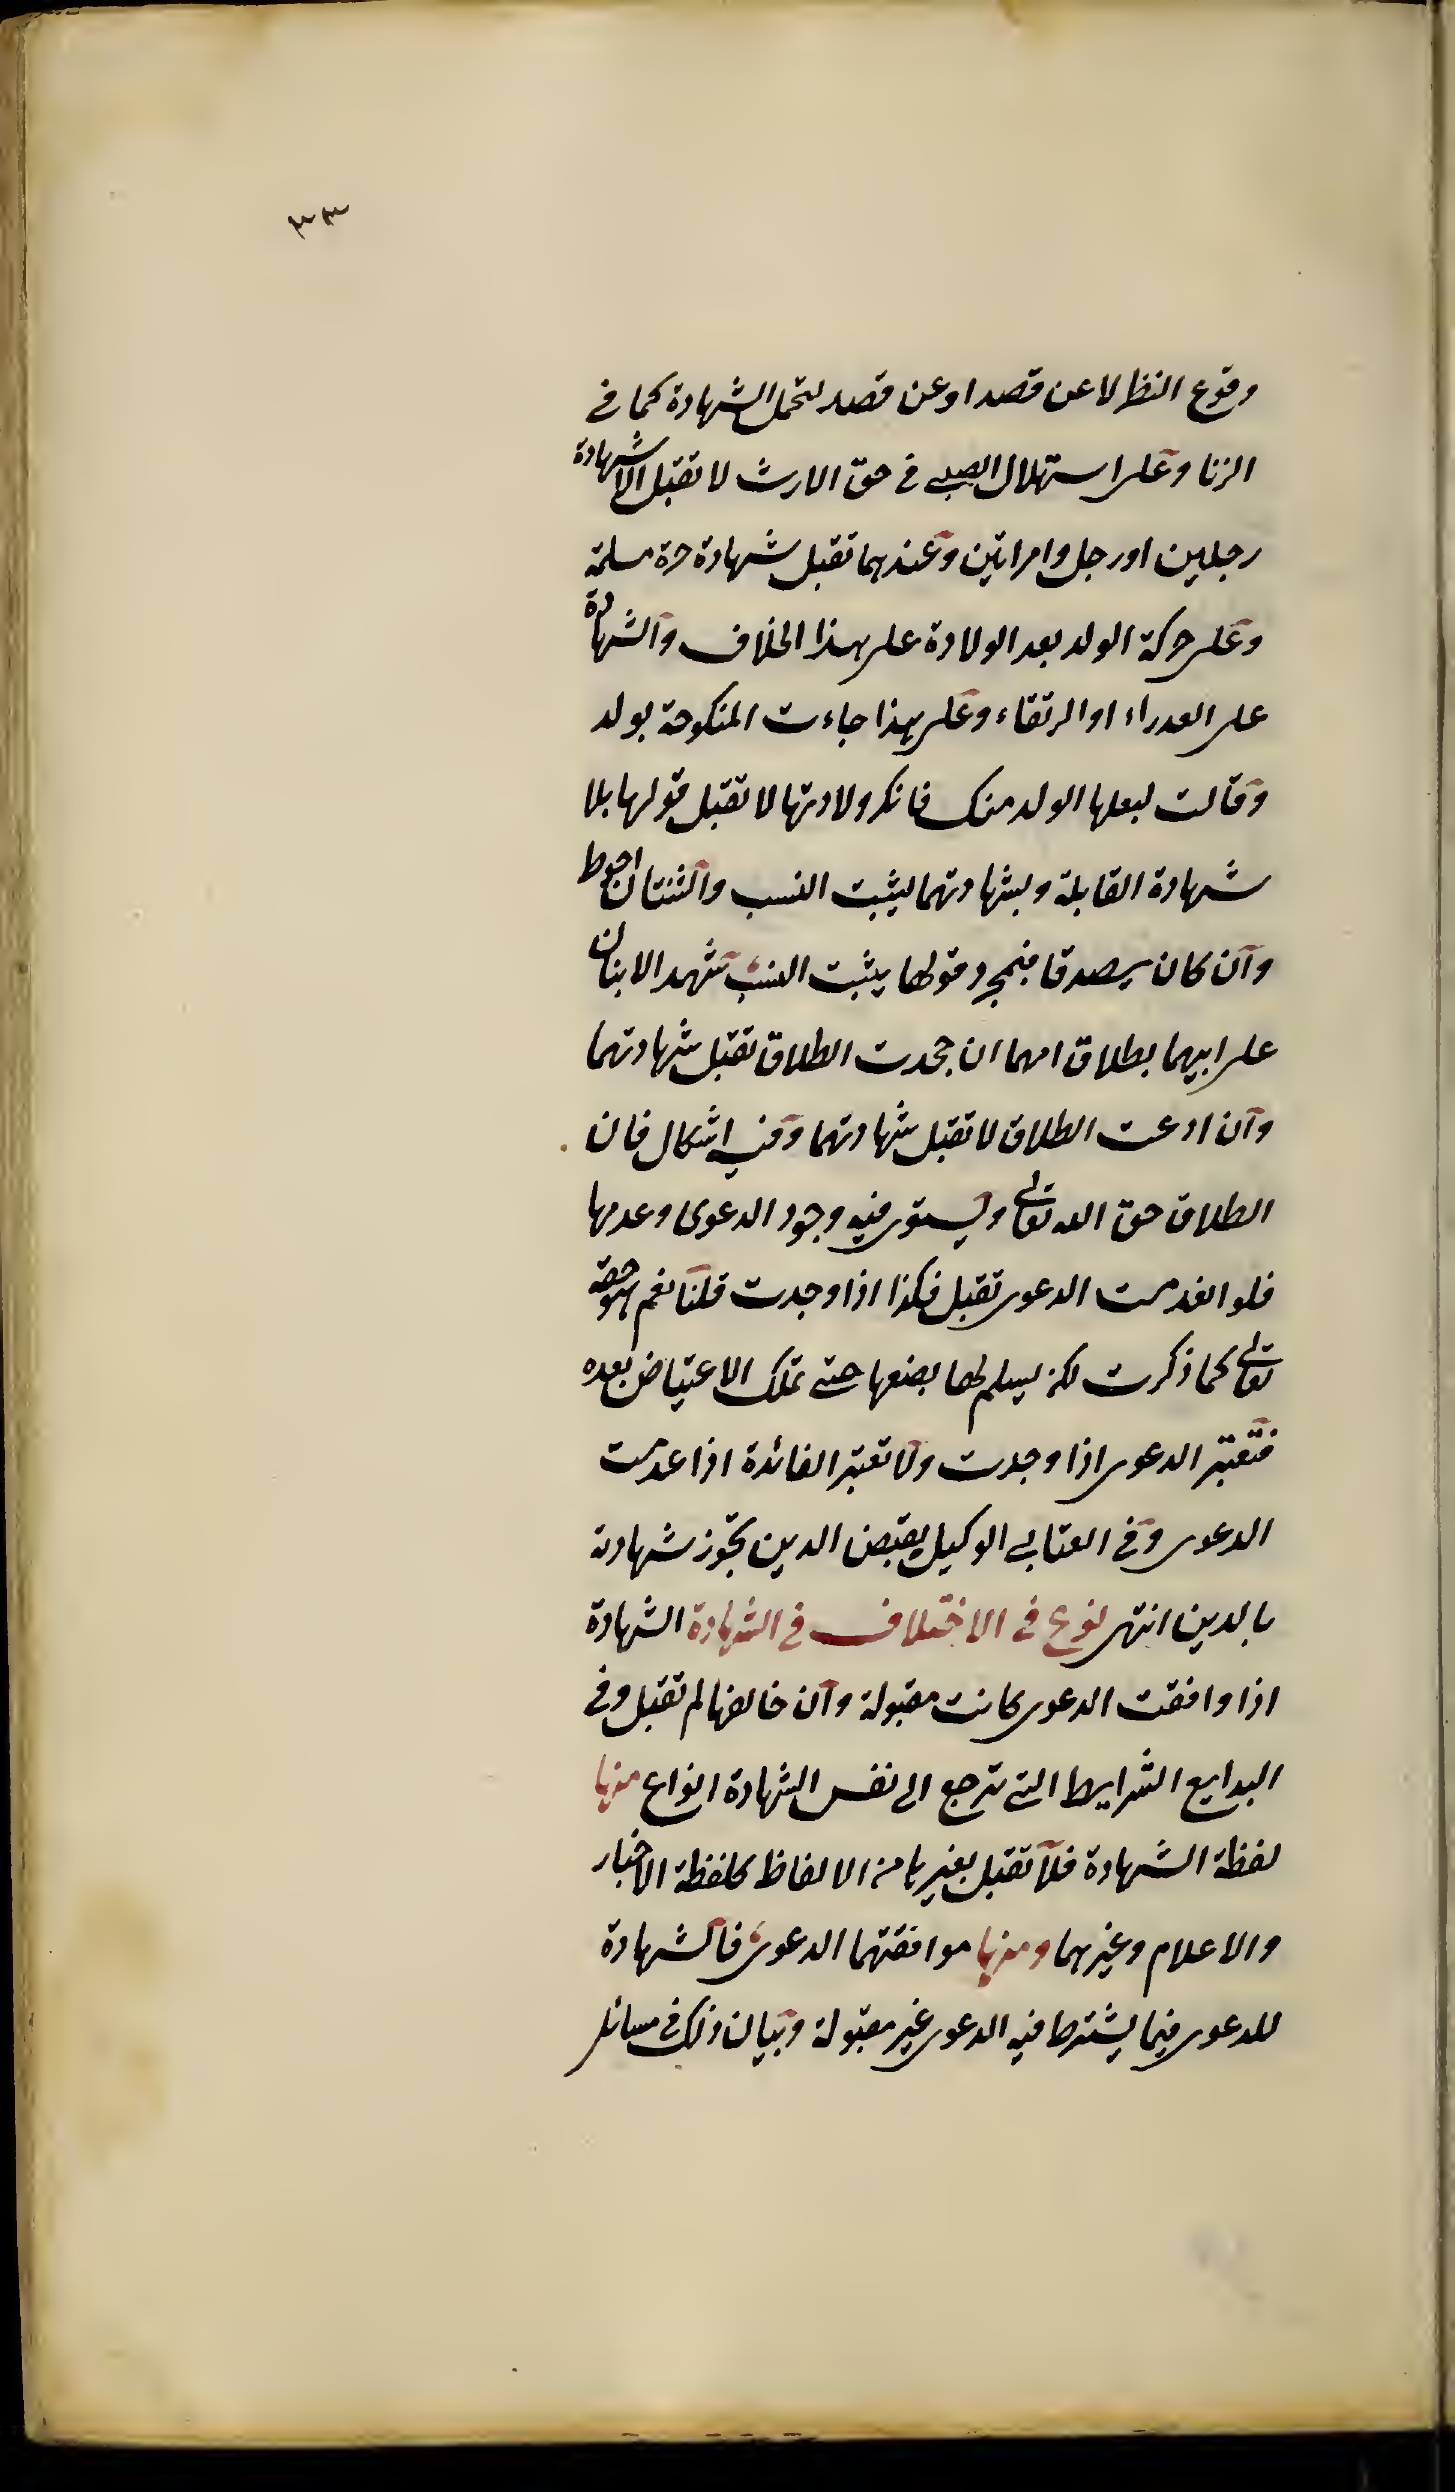 ٣٣
وقوع النظر لا عن قصد او عن قصد لتحمل الشهادة كما في
الزنا وعلى استهلال الصبي في حق الارث لا تقبل الا شهادة
رجلين او رجل وامراتين وعندهما تقبل شهادة حرة مسلمة
وعلى حركة الولد بعد الولادة على هذا الخلاف والشهادة
على العدراء او الرتقاء وعلى هذا جاءت المنكوحة بولد
وقالت لبعلها الولد منك فانكر ولادتها لا تقبل قولها بلا
شهادة القابلة وبشهادتهما يثبت النسب والثنتان احوط
وان كان يصدقا فبمجرد قولها يثبت النسب شهد الابنان
على ابيهما بطلاق امهما ان جحدت الطلاق تقبل شهادتهما
وان ادعت الطلاق لا تقبل شهادتهما وفيه اشكال فان
الطلاق حق الله تعالى ويستوى فيه وجود الدعوى وعدمها
فلو انعدمت الدعوى تقبل فكذا اذا وجدت قلنا نعم هو حقه
تعالى كما ذكرت لكن يسلم لها بضعها حتى تملك الاعتياض بعده
فتعتبر الدعوى اذا وجدت ولا تعتبر الفائدة اذا عدمت
الدعوى وفي العتابي الوكيل بقبض الدين تجوز شهادته
بالدين انتهى نوع في الاختلاف في الشهادة الشهادة
اذا وافقت الدعوى كانت مقبولة وان خالفها لم تقبل وفي
البدايع الشرايط التي ترجع الى نفس الشهادة انواع منها
لفظة الشهادة فلا تقبل بغيرها من الالفاظ كلفظة الاخبار
والاعلام وغيرهما ومنها موافقتهما الدعوى فالشهادة
للدعوى فيما يشترط فيه الدعوى غير مقبولة وبيان ذلك في مسائل